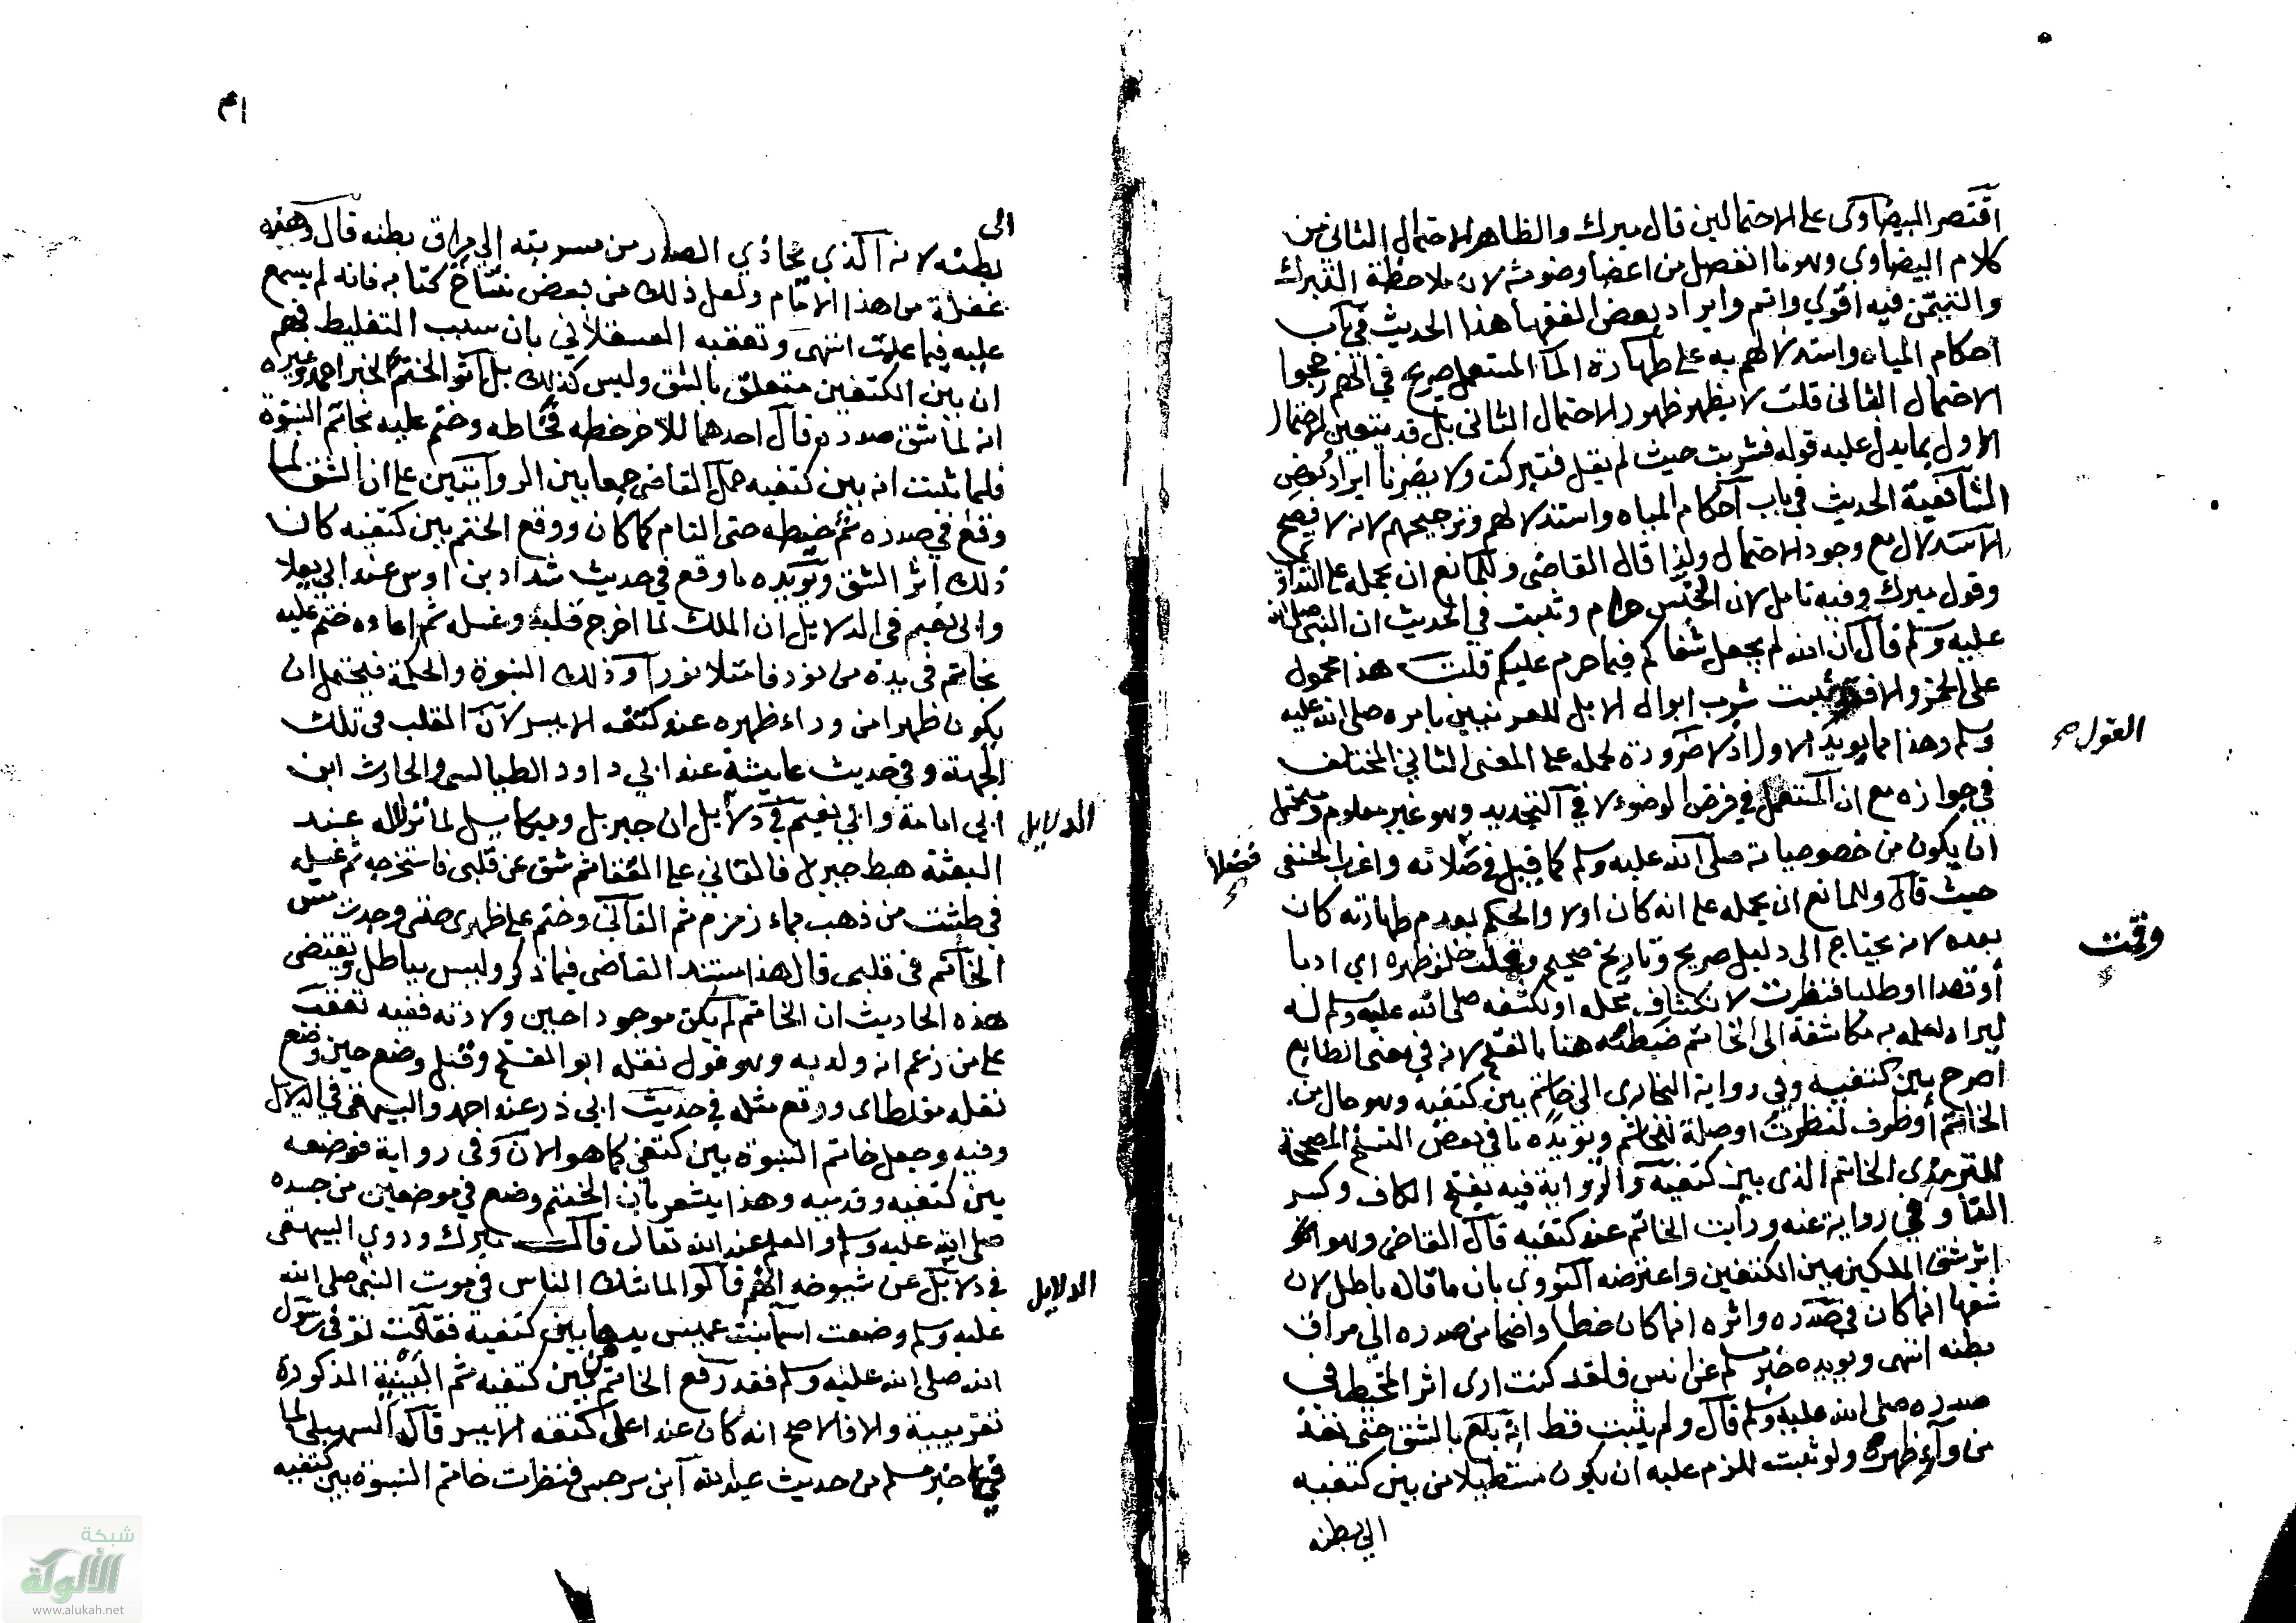 اقتصر البيضاوى على الاحتمالين قال ميرك والظاهر الاحتمال الثاني من
كلام البيضاوي وهو ما انفصل من اعضا وضوئه لان ملاحظة التبرك
والتيمن فيه اقوي واتم وايراد بعض الفقها هذا الحديث في باب
احكام المياه واستدلالهم به على طهارة الما المستعمل صريح في انهم رجحوا
الاحتمال الثانى قلت لا يظهر ظهور الاحتمال الثانى بل قد يتعين الاحتمال
الاول بما يدل عليه قوله فشربت حيث لم يقل فتبركت ولا يضرنا ايراد بعض
الشافعية الحديث في باب احكام المياه واستدلالهم وترجيحهم لانه لا يصح
الاستدلال مع وجود الاحتمال ولذا قال القاضى وللمانع ان يحمله على التداوى
وقول ميرك وفيه تامل لان النجس حرام وثبت في الحديث ان النبى صلى الله
عليه وسلم قال ان الله لم يجعل شفاكم فيما حرم عليكم قلت هذا محمول
على الخمر والا فقد ثبت شرب ابوال الابل للعرنيين بامره صلى الله عليه
وسلم وهذا مما يويد الاول اذ لا ضرورة لحمله على المعنى الثاني المختلف
القول صح
في جوازه مع ان المستعمل في فرض الوضوء لا في التجديد وهو غير معلوم ويحتمل
ان يكون من خصوصياته صلى الله عليه وسلم كما قيل في فضلاته واغرب الحنفى
فضلا
حيث قال وللمانع ان يحمله على انه كان اولا والحكم بعدم طهارته كان
بعده لانه يحتاج الى دليل صريح وتاريخ صحيح وقمت خلف ظهره اي ادبا
وقمت
أو قصدا او طلبا فنظرت لانكشاف محله او لكشفه صلى الله عليه وسلم له
ليراه لعلمه به مكاشفة الى الخاتم ضبطته هنا بالفتح لانه في معنى الطابع
اصرح بين كتفيه وفي رواية البخارى الى خاتم بين كتفيه وهو حال من
الخاتم أو ظرف لنظرت او صلة للخاتم ويؤيده ما في بعض النسخ المصححة
للترمذى الخاتم الذى بين كتفيه والرواية فيه بفتح الكاف وكسر
التا وفي رواية عنه ورايت الخاتم عند كتفيه قال القاضى وهو
اثر شق الملكين بين الكتفين واعترضه النووي بان ما قاله باطل لان
شقهما انما كان في صدره واثره انما كان خطا واضحا من صدره الي مراق
بطنه انتهى ويويده خبر مسلم عن انس فلقد كنت ارى اثر المخيط في
صدره صلى الله عليه وسلم قال ولم يثبت قط انه بلغ بالشق حتى نفذ
من وراء ظهره ولو ثبت للزم عليه ان يكون مستطيلا من بين كتفيه
الي بطنه
الى
بطنه لانه الذي يحاذي الصدر من مسربته الي مراق بطنه قال وهذه
غفلة من هذا الامام ولعل ذلك من بعض نساخ كتابه فانه لم يسمع
عليه فيما علمت انتهى وتعقبه العسقلاني بان سبب التغليط فهم
ان بين الكتفين متعلق بالشق وليس كذلك بل اثر الختم لخبر احمد وغيره
انه لما شق صدره قال احدهما للاخر خطه فخاطه وختم عليه بخاتم النبوة
فلما ثبت انه بين كتفيه حمل القاضى جمعا بين الروايتين على ان الشق لما
وقع في صدره ثم خيطه حتى التام كما كان ووقع الختم بين كتفيه كان
ذلك اثر الشق ويؤيده ما وقع في حديث شداد بن اوس عند ابي يعلا
وابى نعيم فى الدلايل ان الملك لما اخرج قلبه وغسله ثم اعاده ختم عليه
بخاتم فى يده من نور فامتلا نورا وذلك النبوة والحكمة فيحتمل ان
يكون ظهر من وراء ظهره عند كتفه الايسر لان القلب فى تلك
الجهة وفي حديث عايشة عند ابي داود الطيالسى والحارث ابن
ابي اسامة وابي نعيم في دلايل ان جبريل وميكاييل لما نزلا له عند
الدلايل
البعثة هبط جبريل فالقاني على القفا ثم شق عن قلبى فاستخرجه ثم غسله
في طشت من ذهب بماء زمزم ثم القاني وختم على ظهرى حتى وجدت مس
الخاتم فى قلبى قال هذا مستند القاضى فيما ذكر وليس بباطل ويقتضى
هذه الحاديث ان الخاتم لم يكن موجودا حين ولادته ففيه تعقب
على من زعم انه ولد به وهو قول نقله ابو الفتح وقيل وضع حين وضع
نقله مغلطاى ووقع مثله في حديث ابى ذر عند احمد والبيهقى في الدلايل
وفيه وجعل خاتم النبوة بين كتفي كما هو الان وفى رواية فوضعه
بين كتفيه وقدميه وهذا يشعر بان الختم وضع في موضعين من جسده
صلى الله عليه وسلم والعلم عند الله تعالى قال ميرك وروي البيهقى
في دلايل عن شيوخه انهم قالوا لما شك الناس في موت النبى صلى الله
الدلايل
عليه وسلم وضعت اسما بنت عميس يدها بين كتفيه فقالت توفى رسول
الله صلى الله عليه وسلم فقد رفع الخاتم من بين كتفيه ثم البينية المذكورة
تقريبية والا فالاصح انه كان عند اعلى كتفه الايسر قال السهيلى لما
في خبر مسلم من حديث عبد الله ابن سرجس فنظرت خاتم النبوة بين كتفيه
شبكة
الألوكة
www.alukah.net